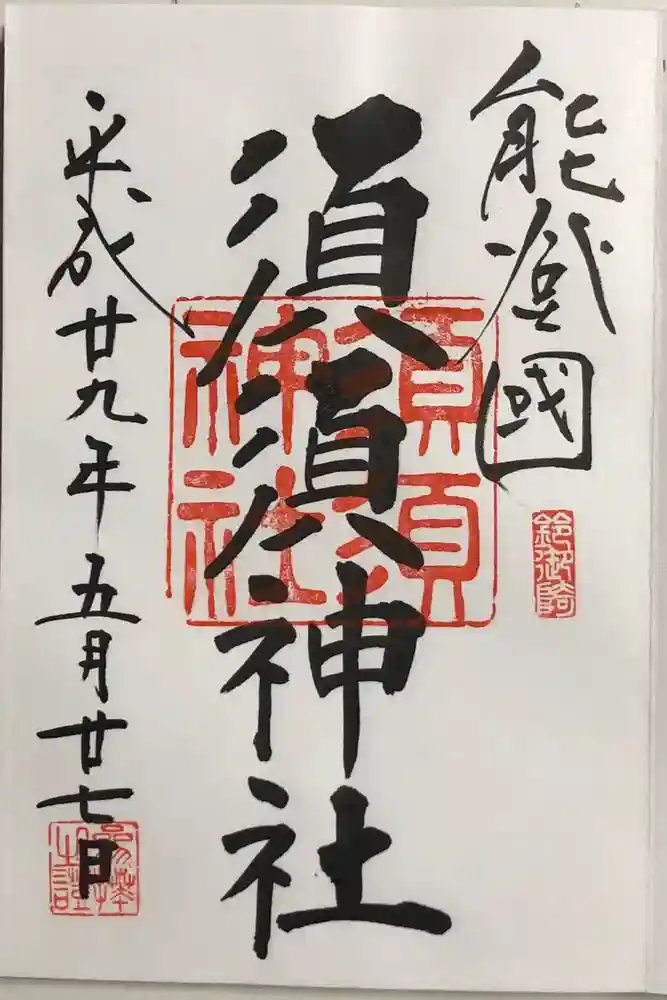 能登國
鈴御埼
須須神社
須須神社
平成廿九年五月廿七日